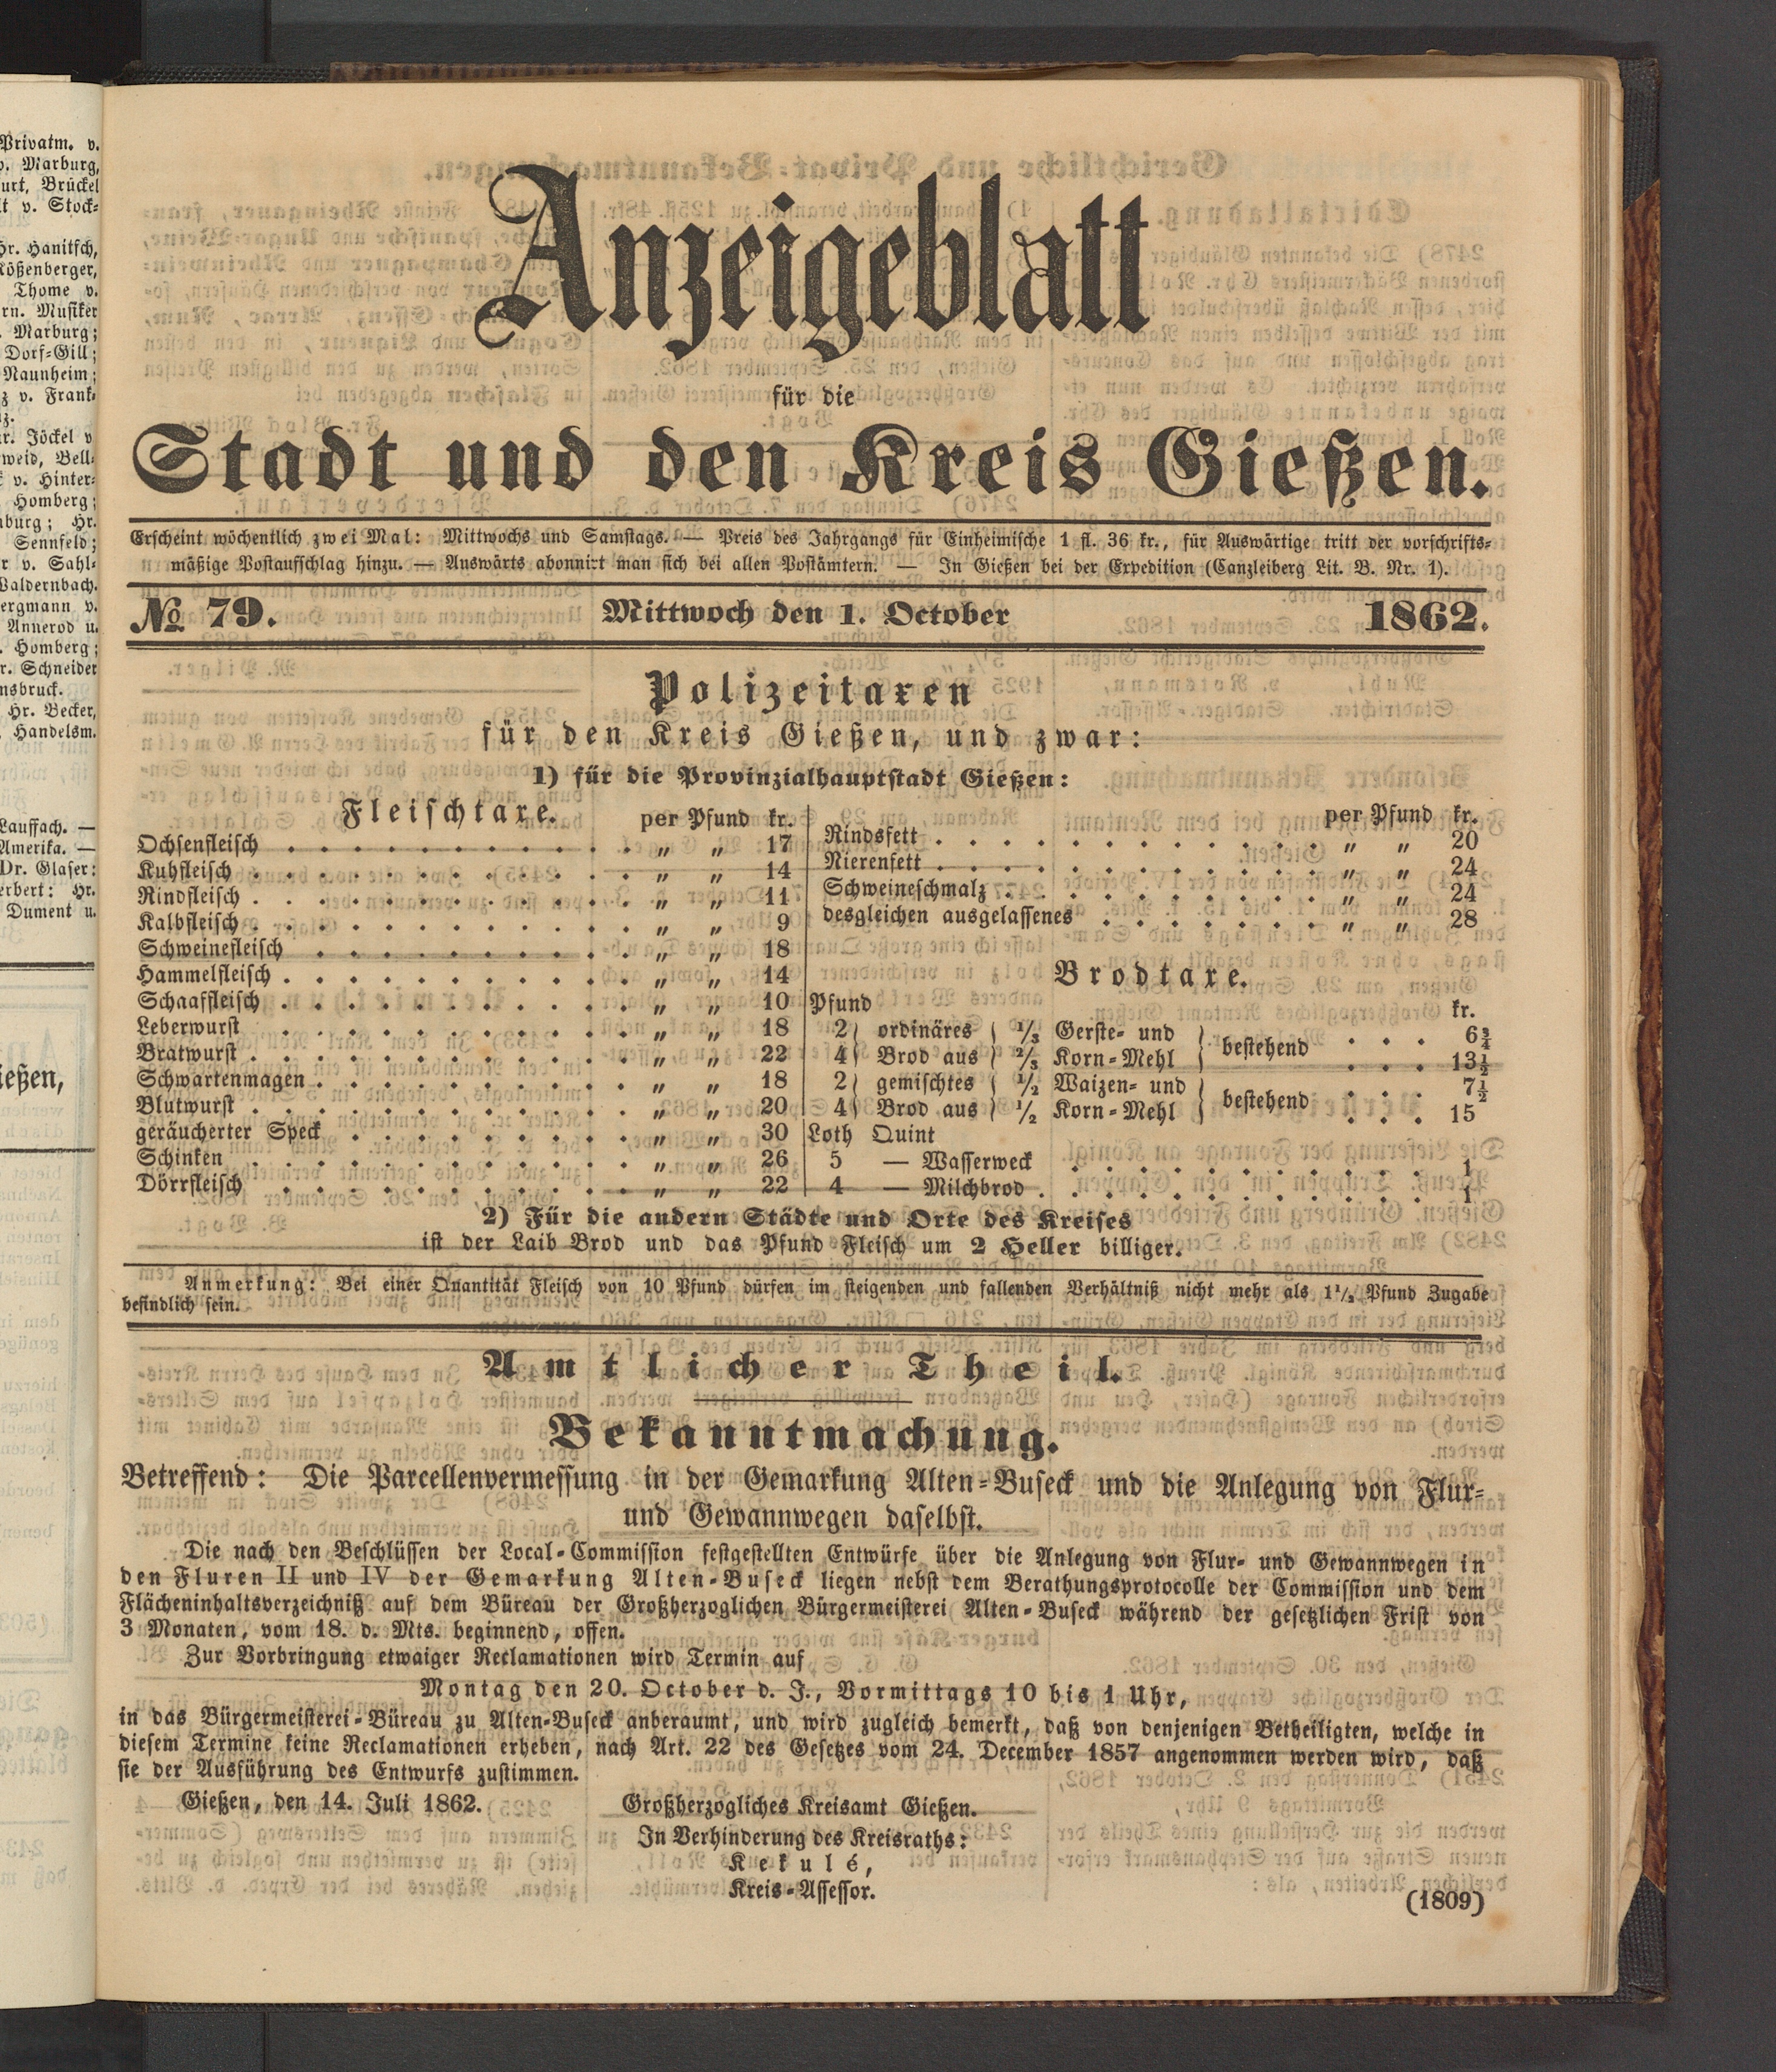 Privatm. v.
v. Marburg,
urt, Brückel
lt v. Stock-
Hr. Hanitsch,
Rößenberger,
Thome v.
rn. Musiker
. Marburg;
Dorf-Gill;
Naunheim;
z v. Frank-
lz.
hr. Jöckel v
weid, Bell-
k v. Hinter-
Homberg;
burg; Hr.
Sennfeld;
r v. Sahl-
Waldernbach.
ergmann v.
Annerod u.
. Homberg;
r. Schneider
nsbruck.
Hr. Becker,
Handelsm.
Lauffach. —
Amerika. —
Dr. Glaser:
erbert: Hr.
Dument u.
ießen,
Anzeigeblatt
für die
Stadt und den Kreis Gießen.
Erscheint wöchentlich zwei Mal: Mittwochs und Samstags. — Preis des Jahrgangs für Einheimische 1 fl. 36 kr., für Auswärtige tritt der vorschrifts-
mäßige Postaufschlag hinzu. — Auswärts abonnirt man sich bei allen Postämtern. — In Gießen bei der Expedition (Canzleiberg Lit. B. Nr. 1).
No 79. Mittwoch den 1. October 1862.
Polizeitaxen
für den Kreis Gießen, und zwar:
1) für die Provinzialhauptstadt Gießen:
Fleischtaxe. per Pfund kr.
Ochsenfleisch . . . . . . . . . . . . „ „ 17
Kuhfleisch . . . . . . . . . . . . „ „ 14
Rindfleisch . . . . . . . . . . . . „ „ 11
Kalbfleisch . . . . . . . . . . . . „ „ 9
Schweinefleisch . . . . . . . . . . „ „ 18
Hammelfleisch . . . . . . . . . . . „ „ 14
Schaaffleisch . . . . . . . . . . . „ „ 10
Leberwurst . . . . . . . . . . . . „ „ 18
Bratwurst . . . . . . . . . . . . „ „ 22
Schwartenmagen . . . . . . . . . . „ „ 18
Blutwurst . . . . . . . . . . . . „ „ 20
geräucherter Speck . . . . . . . . . „ „ 30
Schinken . . . . . . . . . . . . „ „ 26
Dörrfleisch . . . . . . . . . . . . „ „ 22
per Pfund kr.
Rindsfett . . . . . . . . . . . . „ „ 20
Nierenfett . . . . . . . . . . . . „ „ 24
Schweineschmalz . . . . . . . . . . „ „ 24
desgleichen ausgelassenes . . . . . . . „ „ 28
Brodtaxe.
Pfund kr.
2 } ordinäres { 1/3 Gerste- und } bestehend . . . 6 3/4
4 } Brod aus { 2/3 Korn-Mehl } . . . 13 1/2
2 } gemischtes { 1/2 Waizen- und } bestehend . . . 7 1/2
4 } Brod aus { 1/2 Korn-Mehl } . . . 15
Loth Quint
5 — Wasserweck . . . . . . . . . . . 1
4 — Milchbrod . . . . . . . . . . . . 1
2) Für die andern Städte und Orte des Kreises
ist der Laib Brod und das Pfund Fleisch um 2 Heller billiger.
Anmerkung: Bei einer Quantität Fleisch von 10 Pfund dürfen im steigenden und fallenden Verhältniß nicht mehr als 1 1/2 Pfund Zugabe
befindlich sein.
Amtlicher Theil.
Bekanntmachung.
Betreffend: Die Parcellenvermessung in der Gemarkung Alten-Buseck und die Anlegung von Flur-
und Gewannwegen daselbst.
Die nach den Beschlüssen der Local-Commission festgestellten Entwürfe über die Anlegung von Flur- und Gewannwegen in
den Fluren II und IV der Gemarkung Alten-Buseck liegen nebst dem Berathungsprotocolle der Commission und dem
Flächeninhaltsverzeichniß auf dem Büreau der Großherzoglichen Bürgermeisterei Alten-Buseck während der gesetzlichen Frist von
3 Monaten, vom 18. d. Mts. beginnend, offen.
Zur Vorbringung etwaiger Reclamationen wird Termin auf
Montag den 20. October d. J., Vormittags 10 bis 1 Uhr,
in das Bürgermeisterei-Büreau zu Alten-Buseck anberaumt, und wird zugleich bemerkt, daß von denjenigen Betheiligten, welche in
diesem Termine keine Reclamationen erheben, nach Art. 22 des Gesetzes vom 24. December 1857 angenommen werden wird, daß
sie der Ausführung des Entwurfs zustimmen.
Gießen, den 14. Juli 1862. Großherzogliches Kreisamt Gießen.
In Verhinderung des Kreisraths:
Kekulé,
Kreis-Assessor.
(1809)